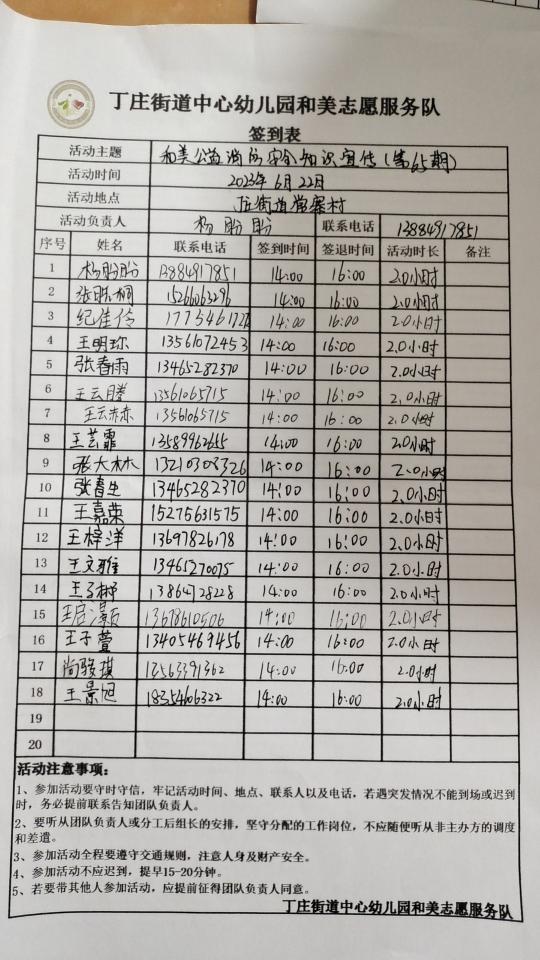 丁庄街道中心幼儿园和美志愿服务队
签到表
活动主题 和美公益消防安全知识宣传(第65期)
活动时间 2023年6月22日
活动地点 丁庄街道常寨村
活动负责人 杨盼盼 联系电话 13884917851
序号 姓名 联系电话 签到时间 签退时间 活动时长 备注
1 杨盼盼 13884917851 14:00 16:00 2.0小时
2 15266063296 14:00 16:00 2.0小时
3 纪佳伶 14:00 16:00 2.0小时
4 王明珎 13561072453 14:00 16:00 2.0小时
5 张春雨 13465282370 14:00 16:00 2.0小时
6 王云腾 13561065715 14:00 16:00 2.0小时
7 王云赤赤 13561065715 14:00 16:00 2.0小时
8 王芸霏 14:00 16:00 2.0小时
9 张大林 13210303326 14:00 16:00 2.0小时
10 张春生 13465282370 14:00 16:00 2.0小时
11 王嘉荣 15275631575 14:00 16:00 2.0小时
12 王梓洋 13697826178 14:00 16:00 2.0小时
13 王文雅 13461270075 14:00 16:00 2.0小时
14 13864728228 14:00 16:00 2.0小时
15 王启灏 13678610506 14:00 16:00 2.0小时
16 王子萱 13405469456 14:00 16:00 2.0小时
17 尚骏琪 13563391362 14:00 16:00 2.0小时
18 王景旭 18354606322 14:00 16:00 2.0小时
19
20
活动注意事项:
1、参加活动要守时守信,牢记活动时间、地点、联系人以及电话,若遇突发情况不能到场或迟到
时,务必提前联系告知团队负责人。
2、要听从团队负责人或分工后组长的安排,坚守分配的工作岗位,不应随便听从非主办方的调度
和差遣。
3、参加活动全程要遵守交通规则,注意人身及财产安全。
4、参加活动不应迟到,提早15-20分钟。
5、若要带其他人参加活动,应提前征得团队负责人同意。
丁庄街道中心幼儿园和美志愿服务队